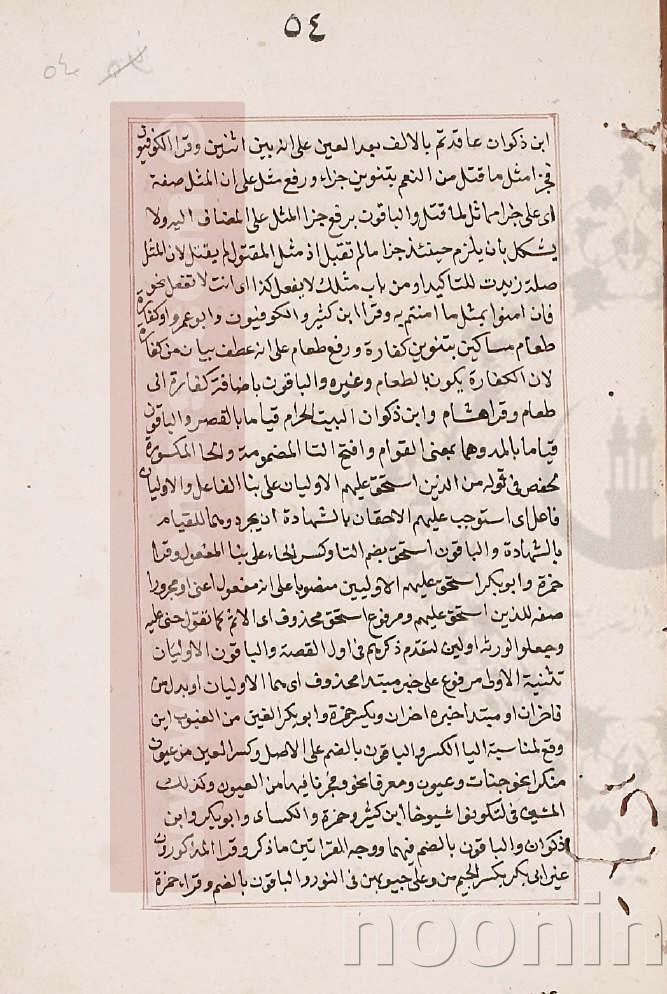 ٥٤
٥٤
ابن ذكوان عاقدتم بالالف بعد العين على انه بين اثنين وقرا الكوفيون
فجزا مثل ما قتل من النعم بتنوين جزاء ورفع مثل على ان المثل صفة
اى على جزا مماثل لما قتل والباقون برفع جزا المثل على المضاف اليه ولا
يشكل بان يلزم حينئذ جزا مالم تقبل اذ مثل المقتول لم يقتل لان المثل
صلة زيدت للتاكيد او من باب مثلك لا يفعل كذا اى انت لا تفعل نحوه
فان امنوا بمثل ما امنتم به وقرا ابن كثير والكوفيون وابو عمرو او كفارة
طعام مساكين بتنوين كفارة ورفع طعام على انه عطف بيان من كفارة
لان الكفارة يكون بالطعام وغيره والباقون باضافة كفارة الى
طعام وقرا هشام وابن ذكوان البيت الحرام قياما بالقصر والباقون
قياما بالمد وهما بمعنى القوام وافتح التا المضمومة والحا المكسورة
لحفص فى قوله من الذين استحق عليهم الاوليان على بنا الفاعل والاوليان
فاعل اى استوجب عليهم الاحقان بالشهادة ان يجردوهما للقيام
بالشهادة والباقون استحق بضم التا وكسر الحاء على بنا المفعول وقرا
حمزة وابوبكر استحق عليهم الاوليين منصوبا على انه مفعول اعنى او مجرورا
صفه للذين استحق عليهم ومرفوع استحق محذوف اى الاثم كما تقول جنى عليه
وجعلوا الورثه اولين لتقدم ذكرهم فى اول القصة والباقون الاوليان
تثنية الاولى مرفوع على خبر مبتدا محذوف اى هما الاوليان او بدل من
فاخران او مبتدا خبره اخران ويكسر حمزة وابوبكر الغين من الغيوب اين
وقع لمناسبة اليا الكسر والباقون بالضم على الاصل وكسر العين من عيون
منكرا نحو جنات وعيون ومعرفا نحو وفجرنا فيها من العيون وكذلك
الشين فى لتكونوا شيوخا ابن كثير وحمزة والكساى وابوبكر وابن
ذكوان والباقون بالضم فيهما ووجه القراتين ما ذكر وقرا المذكورون
غير ابى بكر بكسر الجيم من وعلى جيوبهن فى النور والباقون بالضم وقراء حمزة
noonin